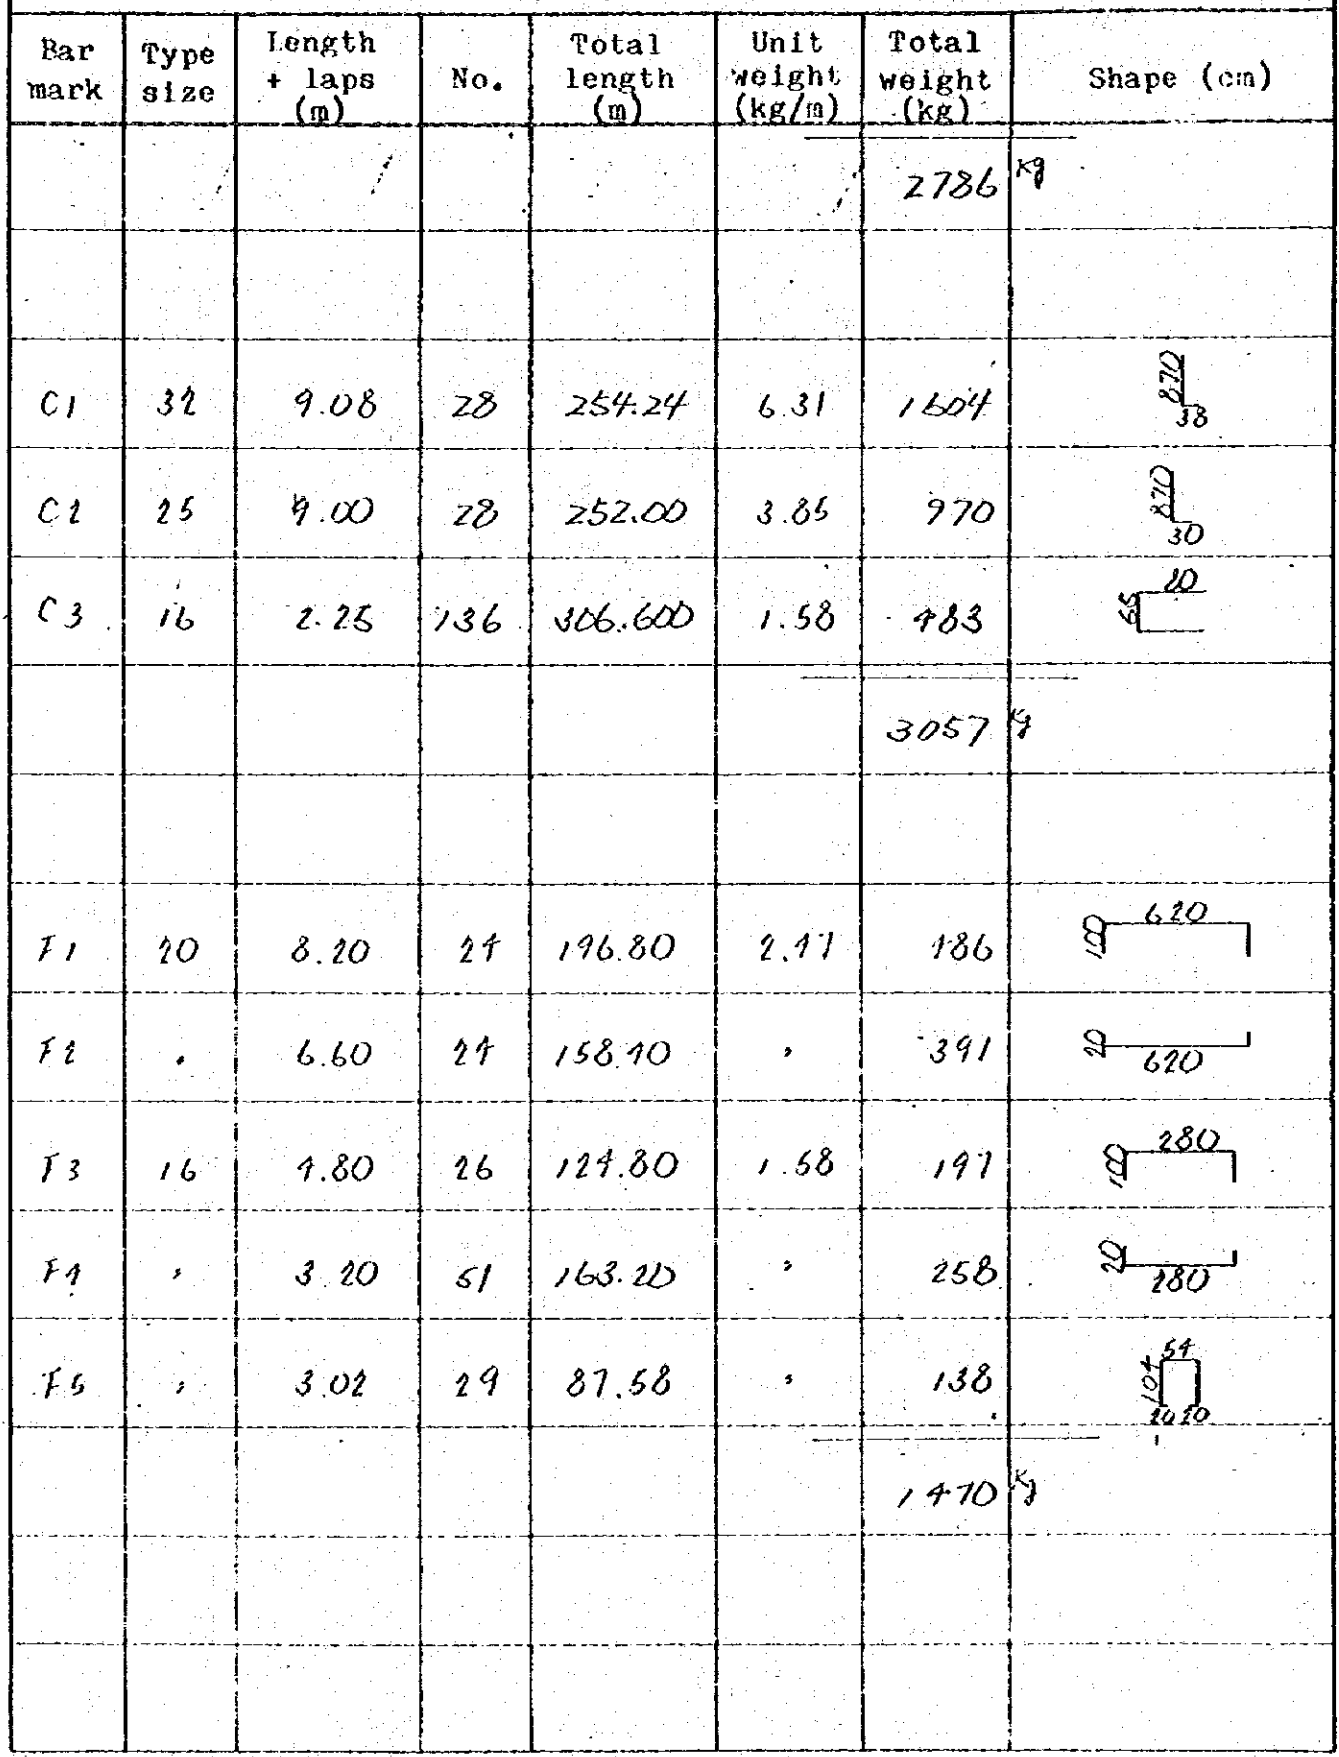 Bar mark Type size Length + laps (m) No. Total length (m) Unit weight (kg/m) Total weight (kg) Shape (cm)
2786 Kg
C1 32 9.08 28 254.24 6.31 1604 870 38
C2 25 9.00 28 252.00 3.85 970 870 30
C3 16 2.25 136 306.600 1.58 483 65 80
3057 Kg
F1 20 8.20 24 196.80 2.47 486 100 620
F2 " 6.60 24 158.40 " 391 20 620
F3 16 4.80 26 124.80 1.58 197 100 280
F4 " 3.20 51 163.20 " 258 20 280
F5 " 3.02 29 87.58 " 138 54 104 20 20
1470 Kg